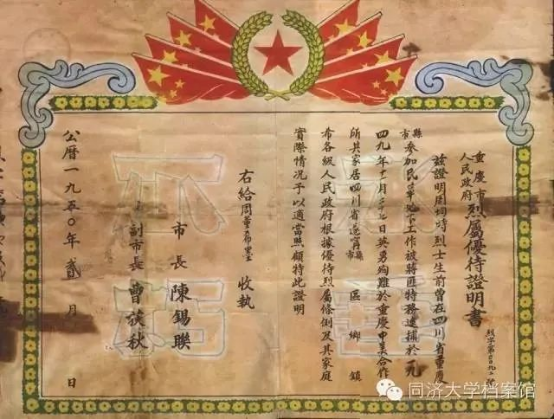 重慶市人民政府烈屬優待證明書
茲證明周均時烈士生前曾在四川省重慶
縣市參加民革地下工作被蔣匪特務逮捕於一九
四九年十一月 日英勇殉難於重慶中美合作
所其家居四川省遂寧縣市 區 鄉 鎮
希各級人民政府根據優待烈屬條例及其家庭
實際情況予以適當照顧特此證明
右給周董 收執
市長 陳錫聯
副市長 曹荻秋
公曆一九五〇年貳月 日
永垂不朽
同济大学档案馆